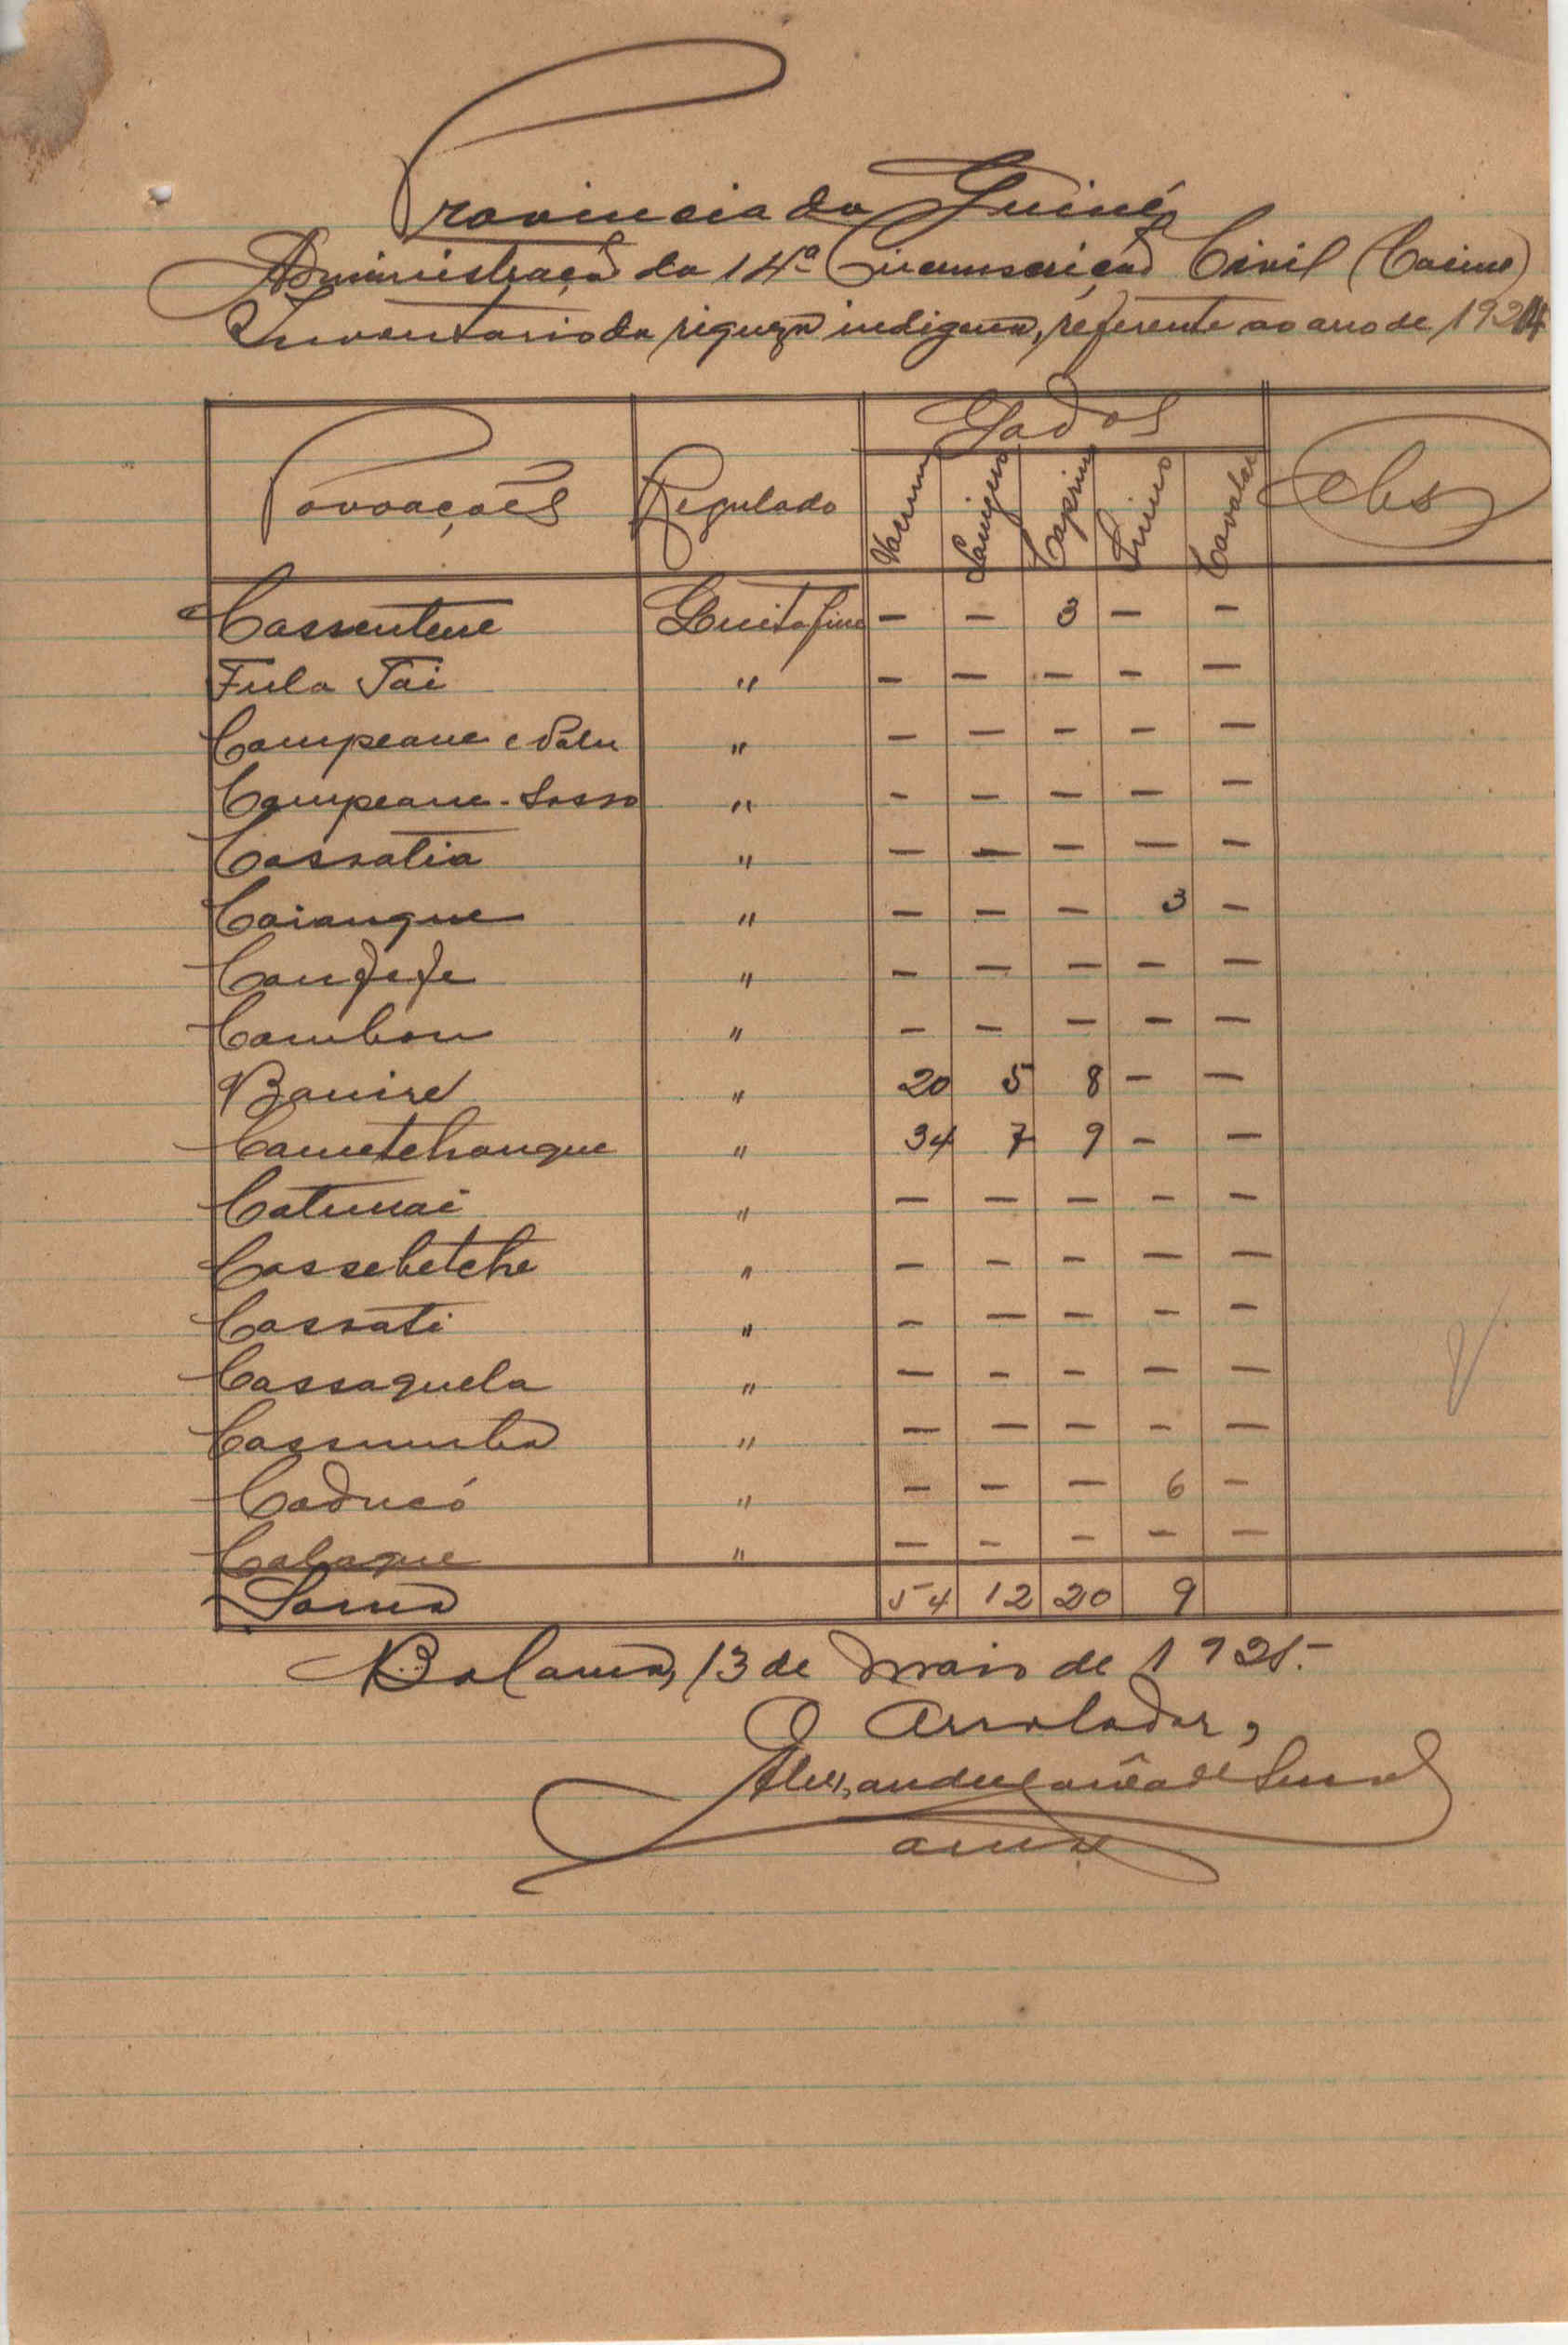 Provincia da Guiné
Administração da 14ª Circunscrição Civil (Cacine)
Inventario da riqueza indigena, referente ao ano de 1924
Povoações Regulado Gados Obs
Vacum Lanigero Caprino Suino Cavalar
Cassentene Guitafine — — 3 — —
Fula Tai " — — — — —
Campeane e Nalu " — — — — —
Campeane - Sosso " — — — — —
Cassatia " — — — — —
Caiangue " — — — 3 —
Canfefe " — — — — —
Cambon " — — — — —
Banire " 20 5 8 — —
Cametchangue " 34 7 9 — —
Catunai " — — — — —
Cassebetche " — — — — —
Cassati " — — — — —
Cassaquela " — — — — —
Cassumba " — — — — —
Caducó " — — — 6 —
Calaque " — — — — —
Soma 54 12 20 9
Bolama, 13 de Maio de 1925.-
O Arrolador,
Alexandre de